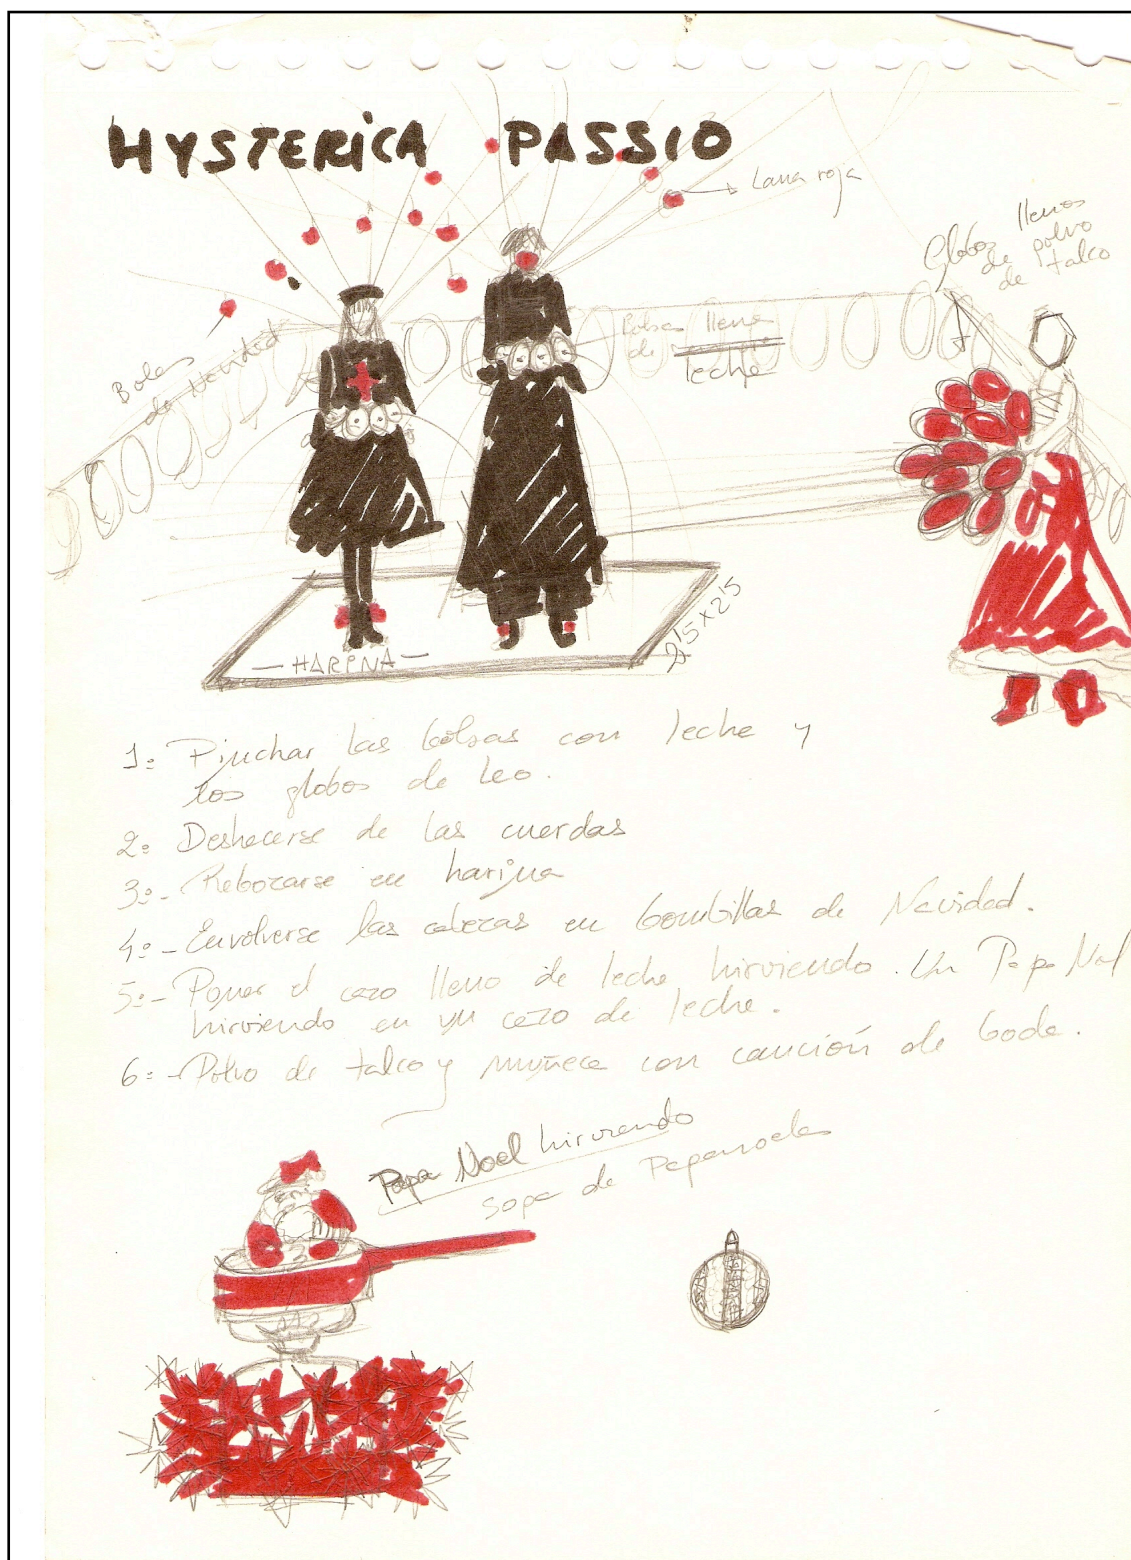 HYSTERICA PASSIO
Lana roja
Globos llenos
de polvo
de talco
Bolas
de Navidad
Bolsas llenas
de leche
- HARINA -
2'5 x 2'5
1º Pinchar las bolsas con leche y
los globos de Leo.
2º Deshacerse de las cuerdas
3º - Rebozarse en harina
4º - Envolverse las cabezas en bombillas de Navidad.
5º - Poner el cazo lleno de leche hirviendo. Un Papa Nol
hirviendo en un cazo de leche.
6º - Polvo de talco y muñeca con canción de boda.
Papa Noel hirviendo
sopa de Papanoeles